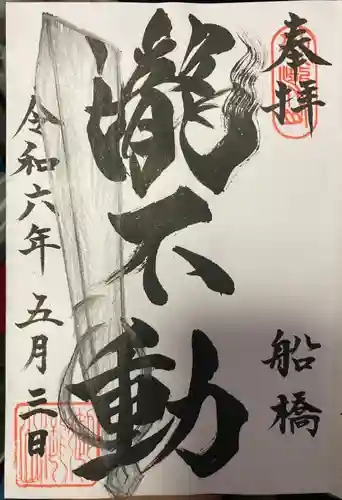 奉拝
船橋
瀧不動
令和六年五月三日